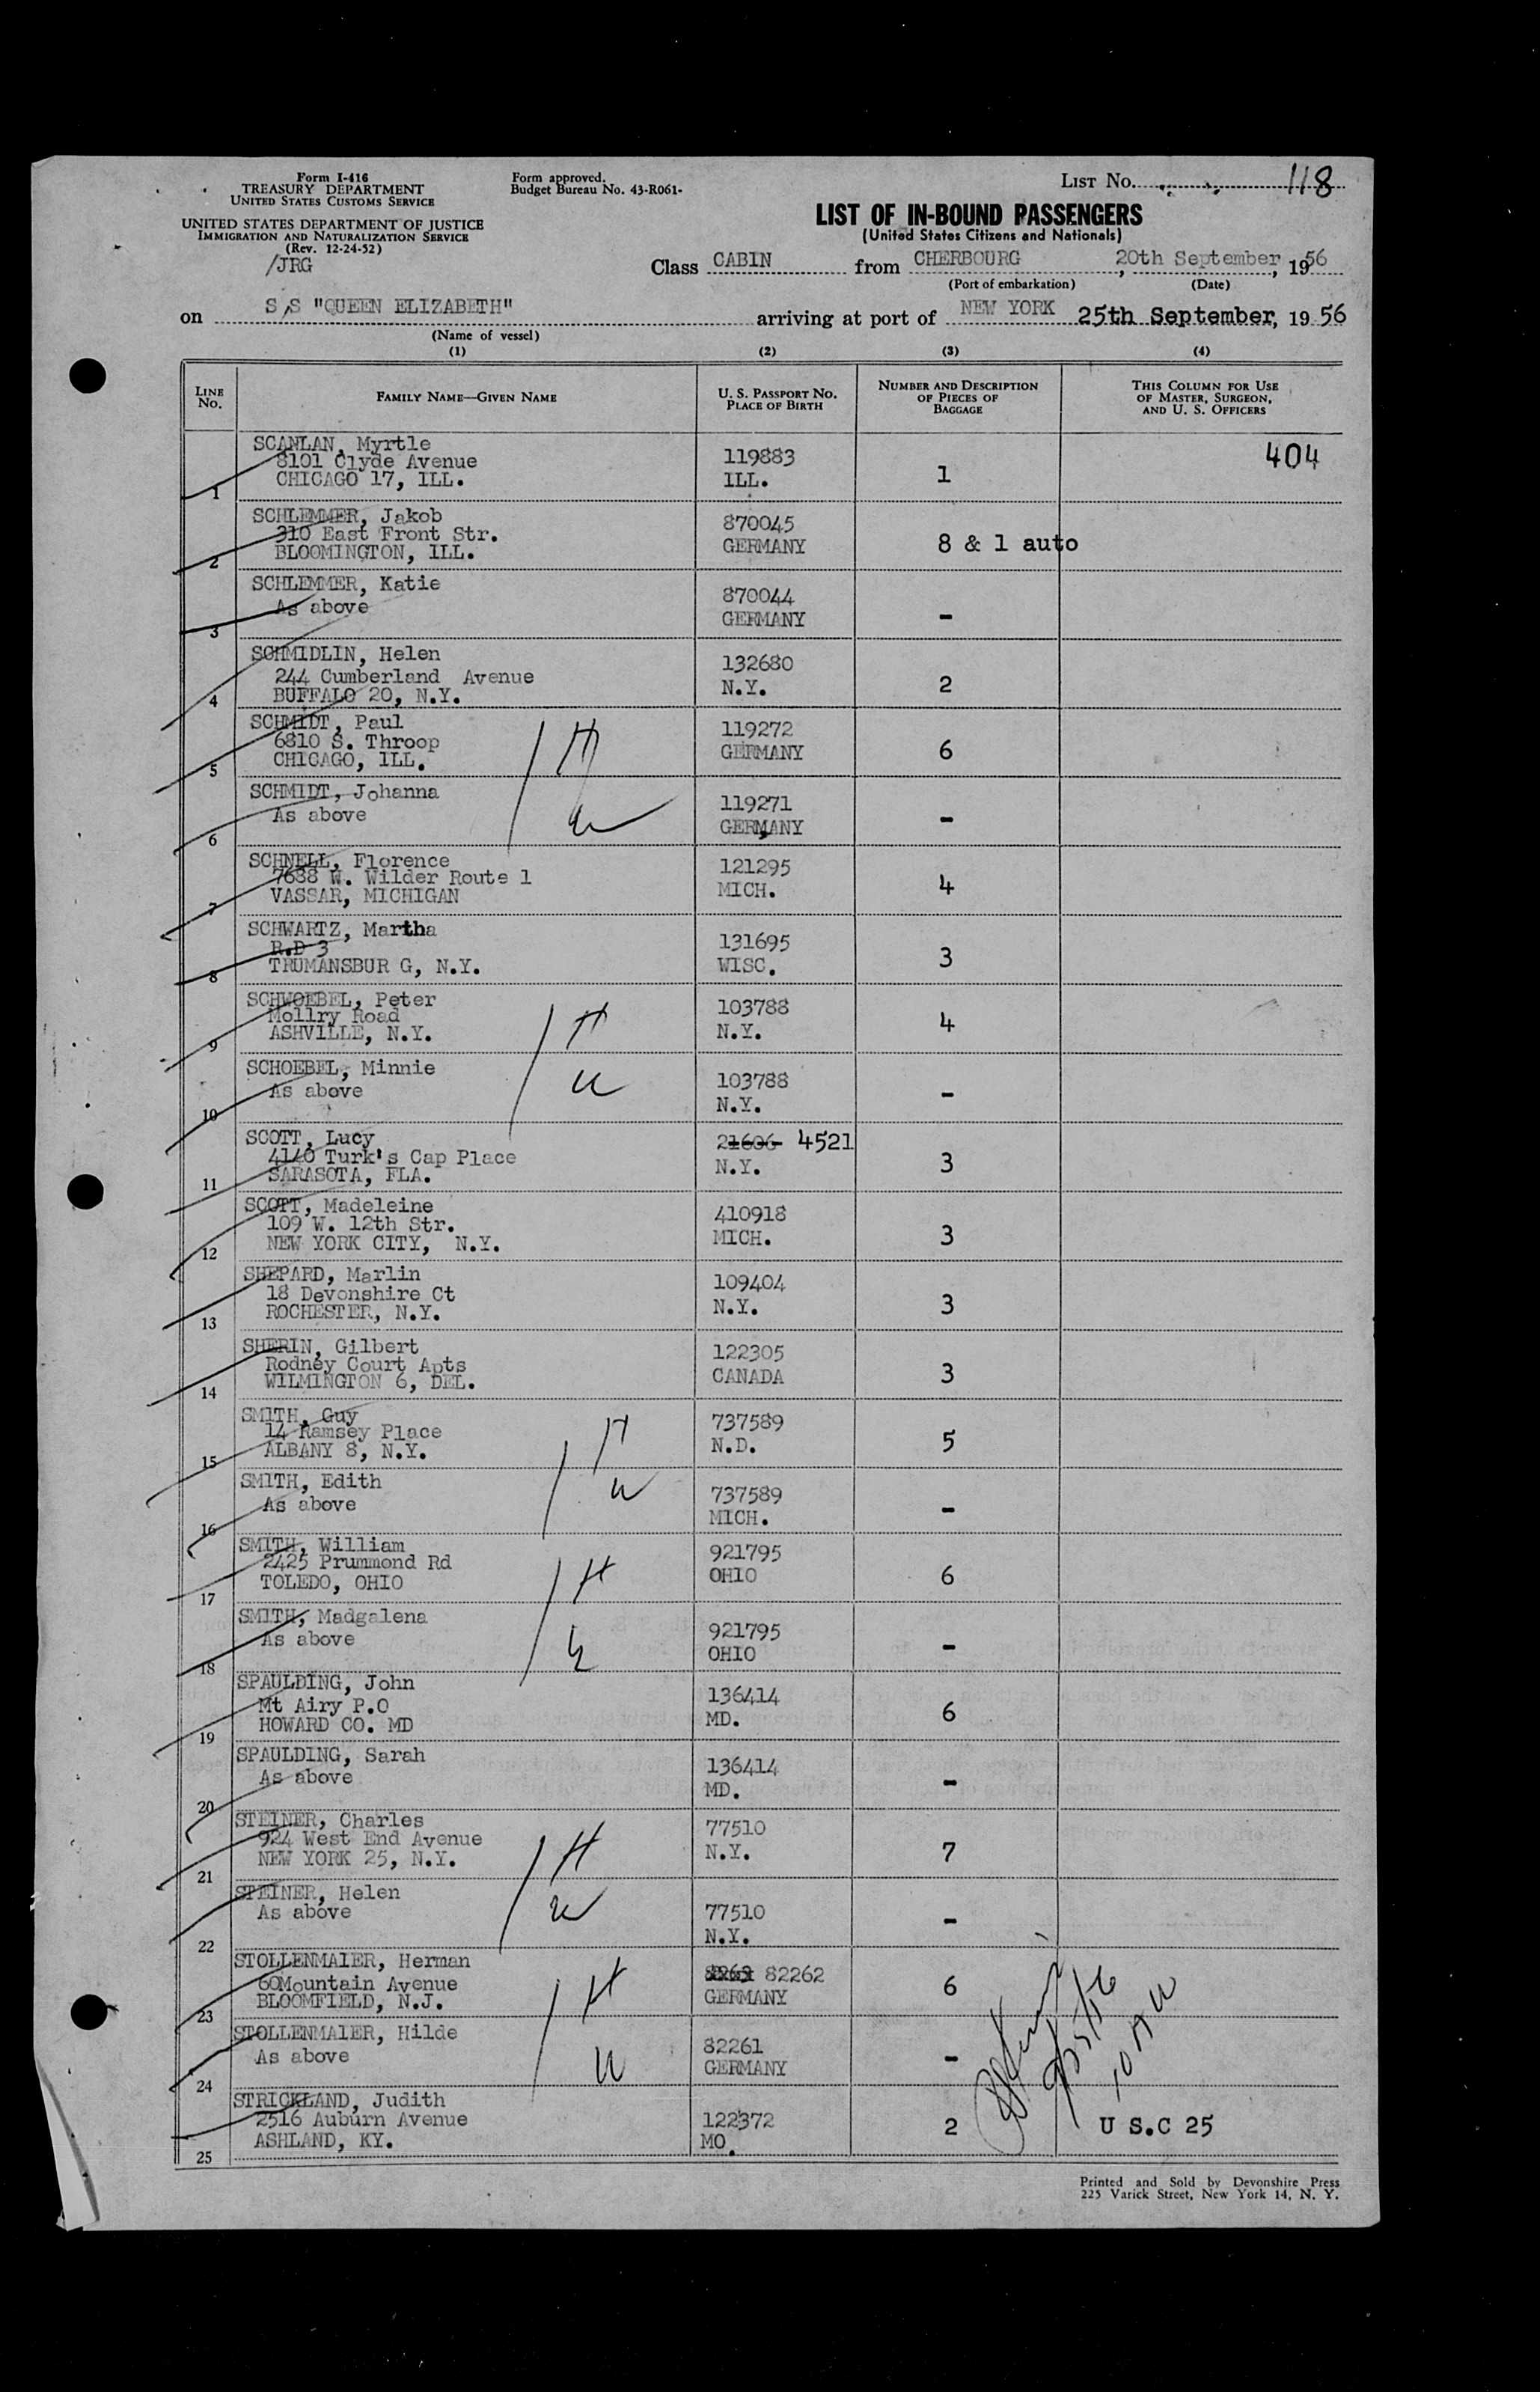 Form I-416
TREASURY DEPARTMENT
UNITED STATES CUSTOMS SERVICE
UNITED STATES DEPARTMENT OF JUSTICE
IMMIGRATION AND NATURALIZATION SERVICE
(Rev. 12-24-52)
/JRG
Form approved.
Budget Bureau No. 43-R061-
LIST No. 118
LIST OF IN-BOUND PASSENGERS
(United States Citizens and Nationals)
Class CABIN from CHERBOURG, 20th September, 1956
(Port of embarkation) (Date)
on S,S "QUEEN ELIZABETH" arriving at port of NEW YORK 25th September, 19 56
(Name of vessel)
(1) (2) (3) (4)
LINE No. FAMILY NAME—GIVEN NAME U. S. PASSPORT NO. PLACE OF BIRTH NUMBER AND DESCRIPTION OF PIECES OF BAGGAGE THIS COLUMN FOR USE OF MASTER, SURGEON, AND U. S. OFFICERS
SCANLAN, Myrtle
8101 Clyde Avenue 119883 404
CHICAGO 17, ILL. ILL. 1
1
SCHLEMMER, Jakob 870045
310 East Front Str. GERMANY 8 & 1 auto
BLOOMINGTON, ILL.
2
SCHLEMMER, Katie 870044
As above GERMANY -
3
SCHMIDLIN, Helen 132680
244 Cumberland Avenue N.Y. 2
BUFFALO 20, N.Y.
4
SCHMIDT, Paul 119272
6810 S. Throop GERMANY 6
CHICAGO, ILL. H
5
SCHMIDT, Johanna 119271
As above GERMANY -
6 W
SCHNELL, Florence 121295
7688 W. Wilder Route 1 MICH. 4
VASSAR, MICHIGAN
7
SCHWARTZ, Martha 131695
R.D 3 WISC. 3
TRUMANSBUR G, N.Y.
8
SCHWOEBEL, Peter 103788
Mollry Road N.Y. 4
ASHVILLE, N.Y. H
9
SCHOEBEL, Minnie 103788
As above W N.Y. -
10
SCOTT, Lucy 21606 4521
4140 Turk's Cap Place N.Y. 3
SARASOTA, FLA.
11
SCOTT, Madeleine 410918
109 W. 12th Str. MICH. 3
NEW YORK CITY, N.Y.
12
SHEPARD, Marlin 109404
18 Devonshire Ct N.Y. 3
ROCHESTER, N.Y.
13
SHERIN, Gilbert 122305
Rodney Court Apts CANADA 3
WILMINGTON 6, DEL.
14
SMITH, Guy 737589
14 Ramsey Place H N.D. 5
ALBANY 8, N.Y.
15
SMITH, Edith W 737589
As above MICH. -
16
SMITH, William 921795
2425 Prummond Rd H OHIO 6
TOLEDO, OHIO
17
SMITH, Madgalena 921795
As above W OHIO -
18
SPAULDING, John 136414
Mt Airy P.O MD. 6
HOWARD CO. MD
19
SPAULDING, Sarah 136414
As above MD. -
20
STEINER, Charles 77510
924 West End Avenue H N.Y. 7
NEW YORK 25, N.Y.
21
STEINER, Helen 77510
As above W N.Y. -
22
STOLLENMAIER, Herman 82262
60Mountain Avenue H GERMANY 6
BLOOMFIELD, N.J.
23
STOLLENMAIER, Hilde 82261
As above W GERMANY -
24
STRICKLAND, Judith 122372
2516 Auburn Avenue MO. 2 U S.C 25
ASHLAND, KY.
25
Printed and Sold by Devonshire Press
225 Varick Street, New York 14, N. Y.